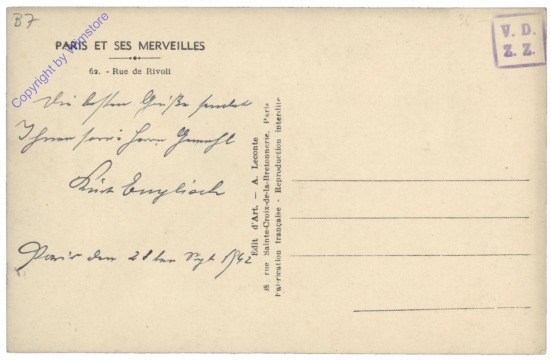 B7
Copyright by Wernstore
PARIS ET SES MERVEILLES
62. - Rue de Rivoli
V. D.
Z. Z.
Die besten Grüße sendet
Ihnen Herrn Gemahl
Kurt Englisch
Paris den 28ten Sept 1942
Edit. d'Art. — A. Leconte
18 rue Sainte-Croix-de-la-Bretonnerie, Paris
Fabrication française - Reproduction interdite